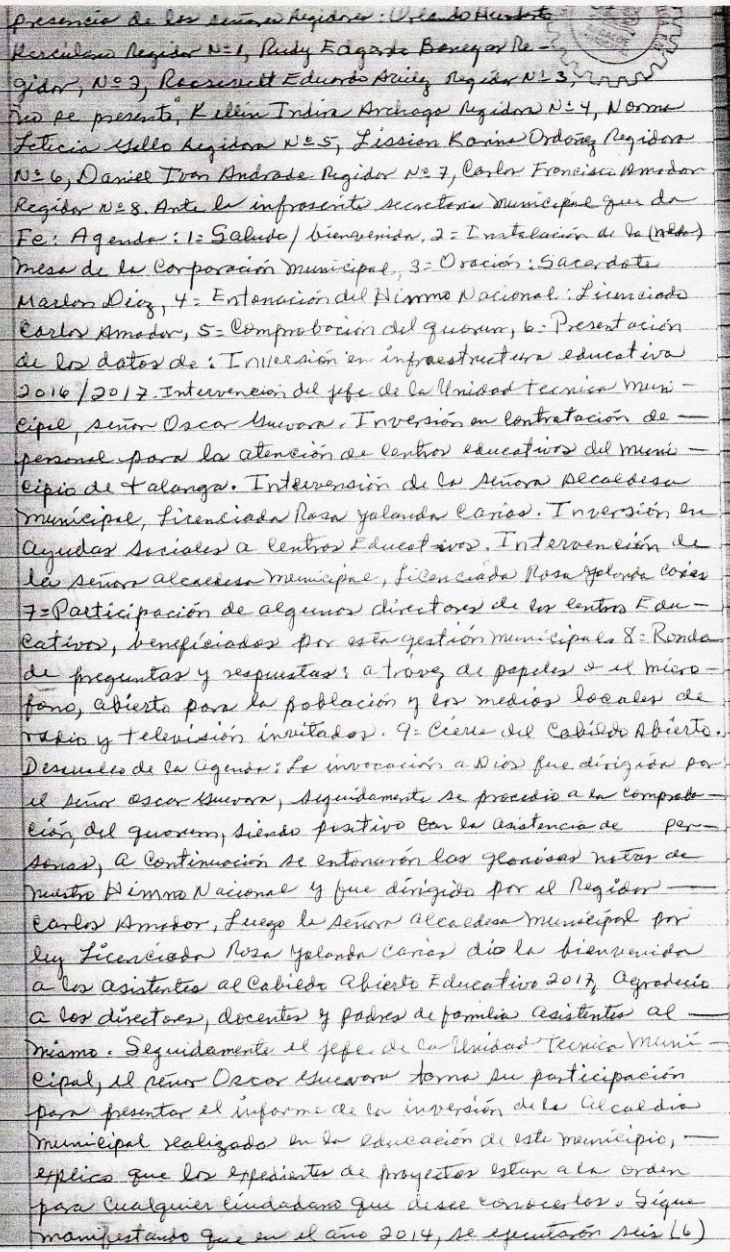 presencia de los señores Regidores: Orlando Humberto
Herculano Regidor Nº 1, Rudy Edgardo Banegas Re-
gidor, Nº 2, Roosevelt Eduardo Avilez Regidor Nº 3,
no se presentó, Kellin Indira Archaga Regidora Nº 4, Norma
Leticia Gallo Regidora Nº 5, Lission Karina Ordoñez Regidora
Nº 6, Daniel Ivan Andrade Regidor Nº 7, Carlos Francisco Amador
Regidor Nº 8. Ante la infrascrita secretaria Municipal que da
Fe: Agenda: 1= Saludo / bienvenida, 2= Instalación de la
mesa de la Corporación Municipal, 3= Oración: Sacerdote
Marlon Díaz, 4= Entonación del Himno Nacional: Licenciado
Carlos Amador, 5= Comprobación del quorum, 6= Presentación
de los datos de: Inversión en infraestructura educativa
2016/2017. Intervención del jefe de la Unidad Tecnica Muni-
cipal, señor Oscar Guevara. Inversión en contratación de —
personal para la atención de centros educativos del muni-
cipio de talanga. Intervensión de la señora Alcaldesa
Municipal, Licenciada Rosa Yolanda Carias. Inversión en
Ayudas Sociales a Centros Educativos. Intervención de
la señora alcaldesa Municipal, Licenciada Rosa Yolanda Carias
7= Participación de algunos directores de los centros Edu-
cativos, beneficiados por esta gestión municipal. 8= Ronda
de preguntas y respuestas: a travez de papeles o el micro-
fono, abierto para la población y los medios locales de
radio y televisión invitados. 9= Cierre del Cabildo Abierto.
Desarrollo de la Agenda: La invocación a Dios fue dirigida por
el señor Oscar Guevara, seguidamente se procedio a la comproba-
ción, del quorum, siendo positivo con la asistencia de per-
sonas, a continuación se entonarón las gloriosas notas de
nuestro Himno Nacional y fue dirigido por el Regidor —
Carlos Amador, Luego la señora alcaldesa Municipal por
ley Licenciada Rosa Yolanda Carias dio la bienvenida
a los asistentes al Cabildo Abierto Educativo 2017, Agradecio
a los directores, docentes y padres de familia asistentes al —
mismo. Seguidamente el jefe de la Unidad Tecnica Muni-
cipal, el señor Oscar Guevara toma su participación
para presentar el informe de la inversión de la Alcaldia
Municipal realizada en la educación de este municipio, —
explico que los expedientes de proyectos estan a la orden
para cualquier ciudadano que desee conocerlos. Sigue
manifestando que en el año 2014, se ejecutarón seis (6)